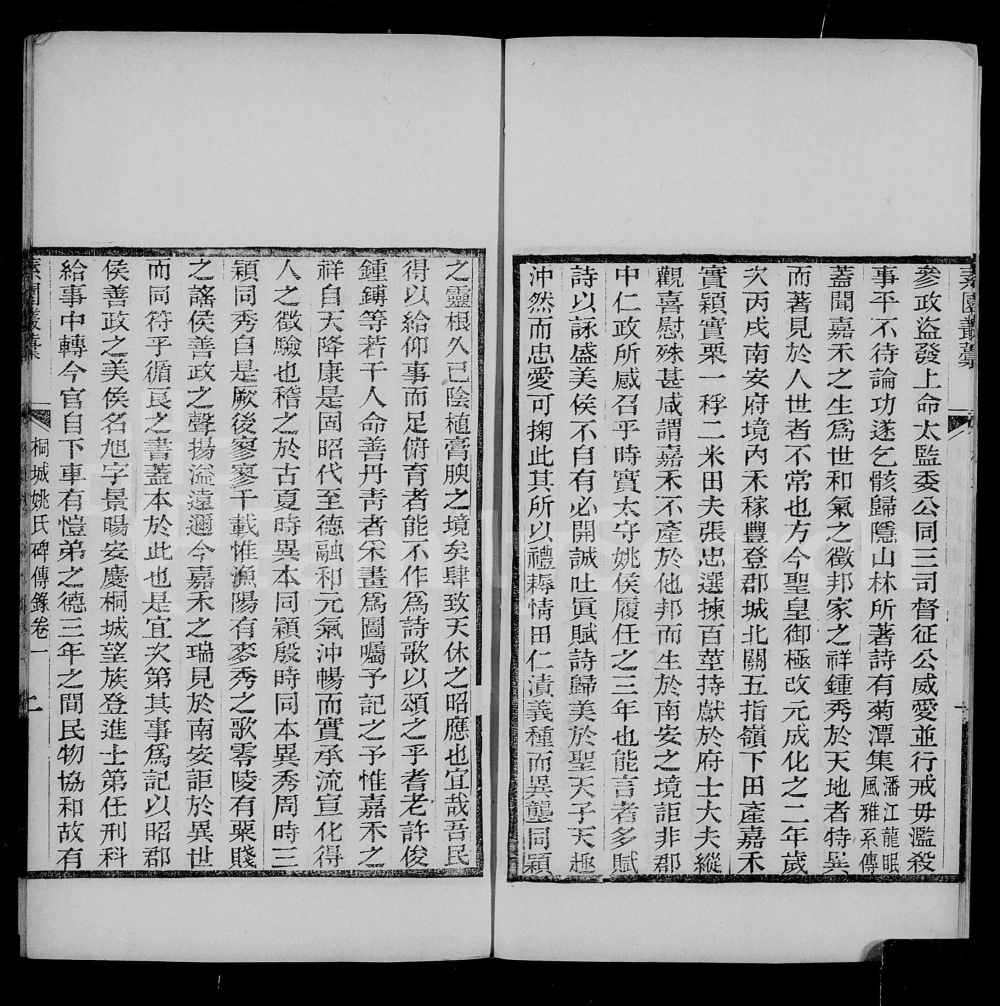 參政盜發上命太監委公同三司督征公威愛並行戒毋濫殺
事平不待論功遂乞骸歸隱山林所著詩有菊潭集潘江龍眠風雅系傳
蓋聞嘉禾之生爲世和氣之徵邦家之祥鍾秀於天地者特異
而著見於人世者不常也方今聖皇御極改元成化之二年歲
次丙戌南安府境內禾稼豐登郡城北關五指嶺下田產嘉禾
實穎實栗一稃二米田夫張忠選揀百莖持獻於府士大夫縱
觀喜慰殊甚咸謂嘉禾不產於他邦而生於南安之境詎非郡
中仁政所感召乎時實太守姚侯履任之三年也能言者多賦
詩以詠盛美侯不自有必開誠吐寘賦詩歸美於聖天子天趣
沖然而忠愛可掬此其所以禮耨情田仁漬義種而異壟同穎
之靈根久已陰植膏腴之境矣肆致天休之昭應也宜哉吾民
得以給仰事而足俯育者能不作爲詩歌以頌之乎耆老許俊
鍾鏄等若干人命善丹靑者宋畫爲圖囑予記之予惟嘉禾之
祥自天降康是固昭代至德融和元氣沖暢而實承流宣化得
人之徵驗也稽之於古夏時異本同穎殷時同本異秀周時三
穎同秀自是厥後寥寥千載惟漁陽有麥秀之歌零陵有粟賤
之謠侯善政之聲揚溢遠邇今嘉禾之瑞見於南安詎於異世
而同符乎循良之書蓋本於此也是宜次第其事爲記以昭郡
侯善政之美侯名旭字景暘安慶桐城望族登進士第任刑科
給事中轉今官自下車有愷弟之德三年之間民物協和故有
素園叢稾
桐城姚氏碑傳錄卷一